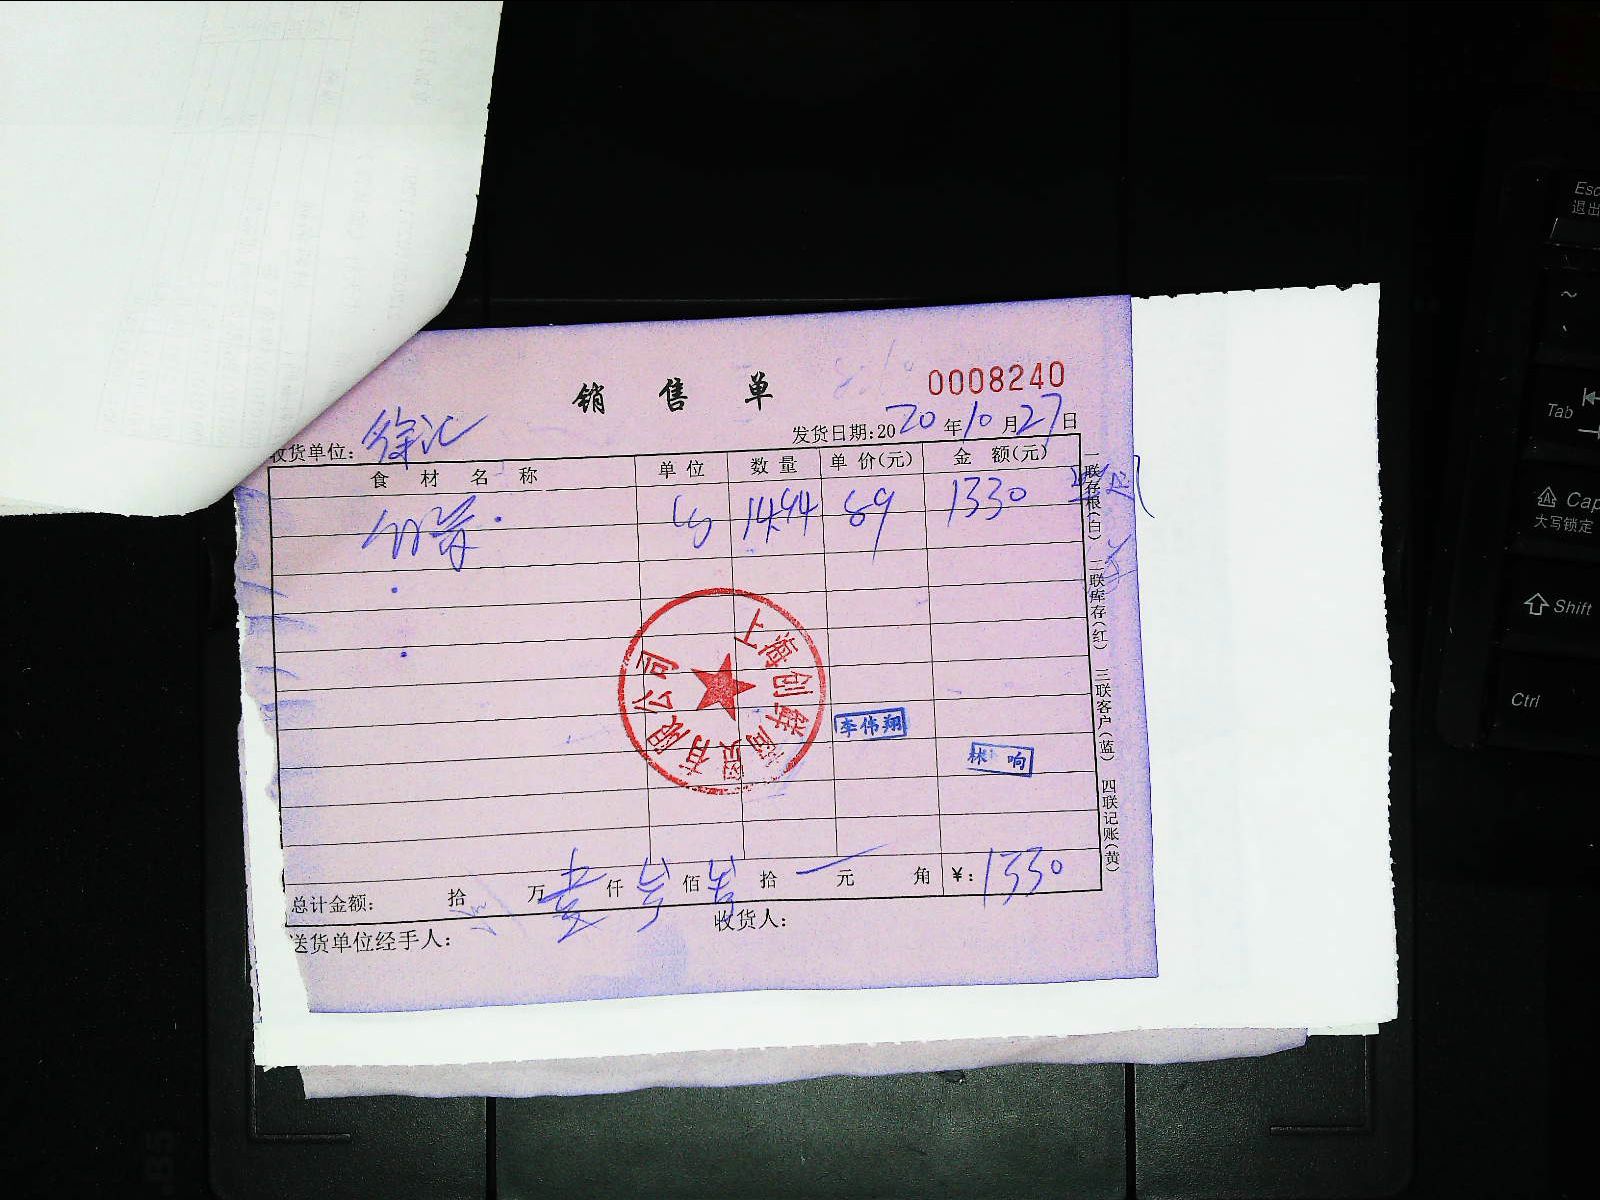 销 售 单
0008240
收货单位: 徐汇
发货日期:2020 年 10 月 27 日
食 材 名 称 单 位 数 量 单 价(元) 金 额(元)
14.94 89 1330
上海创 商贸有限公司
李伟翔
林 响
总计金额: 拾 万 壹 仟 佰 拾 元 角 ¥: 1330
送货单位经手人: 收货人:
一联存根(白) 二联库存(红) 三联客户(蓝) 四联记账(黄)
Esc
退出
~
Tab
Cap
大写锁定
Shift
Ctrl